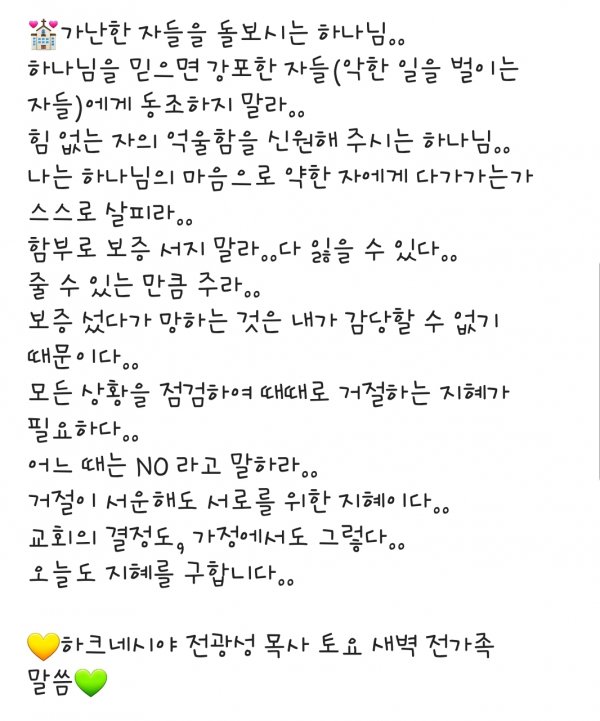 💒가난한 자들을 돌보시는 하나님。。
하나님을 믿으면 강포한 자들(악한 일을 벌이는
자들)에게 동조하지 말라。。
힘 없는 자의 억울함을 신원해 주시는 하나님。。
나는 하나님의 마음으로 약한 자에게 다가가는가
스스로 살피라。。
함부로 보증 서지 말라。。다 잃을 수 있다。。
줄 수 있는 만큼 주라。。
보증 섰다가 망하는 것은 내가 감당할 수 없기
때문이다。。
모든 상황을 점검하여 때때로 거절하는 지혜가
필요하다。。
어느 때는 NO 라고 말하라。。
거절이 서운해도 서로를 위한 지혜이다。。
교회의 결정도, 가정에서도 그렇다。。
오늘도 지혜를 구합니다。。
💛하크네시야 전광성 목사 토요 새벽 전가족
말씀💚